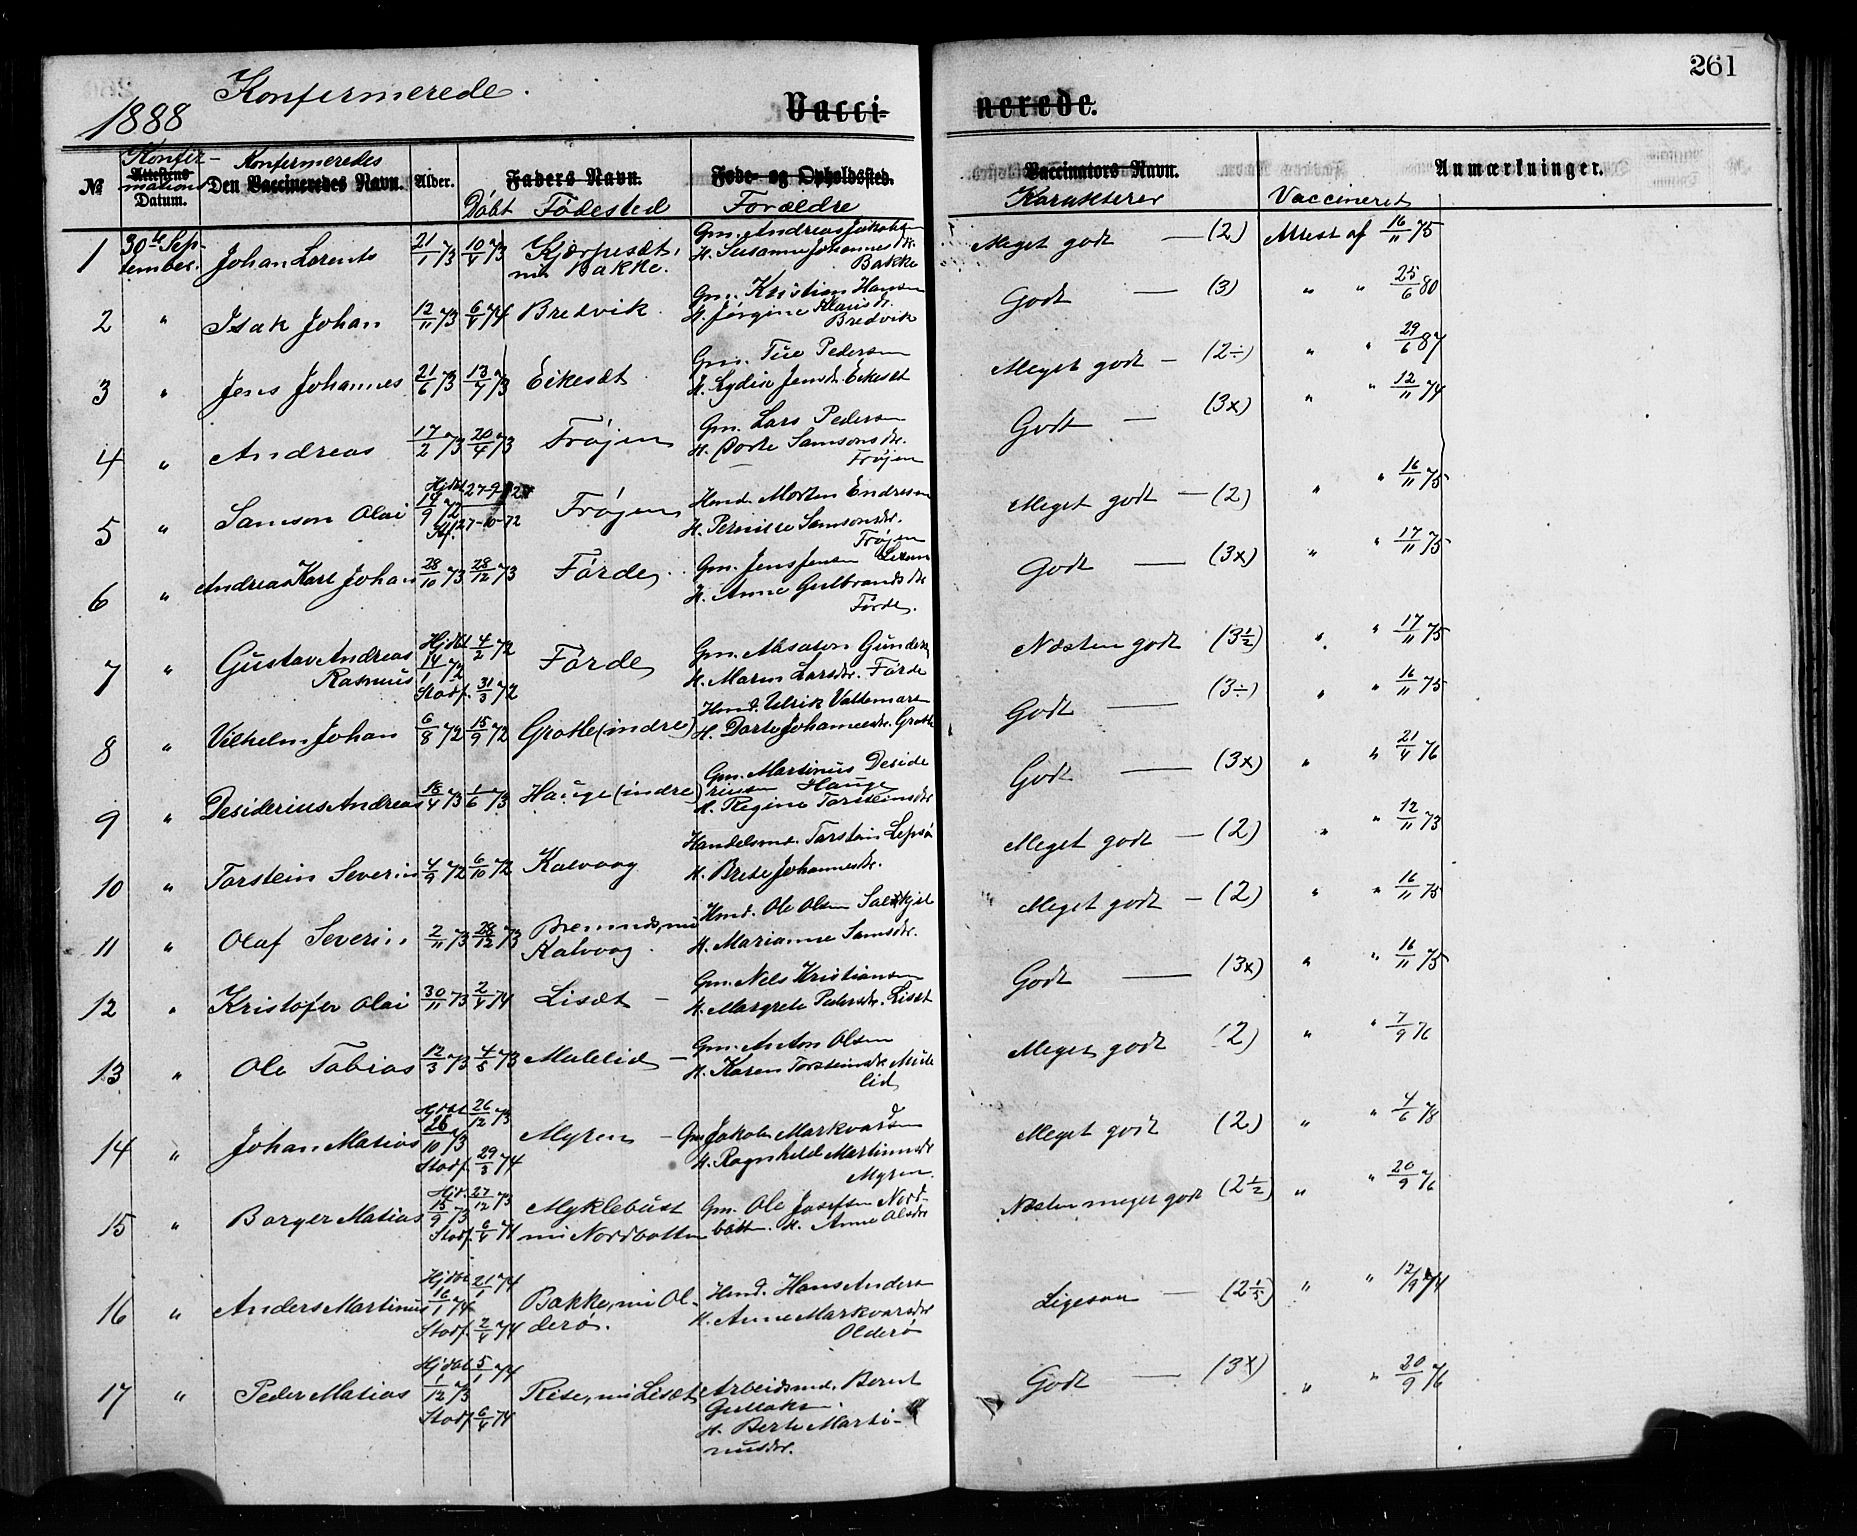 261
Konfermerede.
1888
Vacci- nerede.
Konfer-
mations
Konfermeredes
№ Attestens Datum. Den Vaccineredes Navn. Alder. Faders Navn. Føde- og Opholdssted. Vaccinators Navn. Anmærkninger.
Døbt Fødested Forældre Karakterer Vaccineret
1 30te September. Johan Lorents 21/1 73 10/4 73 Kjærpesæt, nu Bakke. Gm. Andreas Jakobsen H. Susanne Johannesdr. Bakke Meget godt — (2) Attest af 16/11 75
2 " Isak Johan 12/11 73 6/4 74 Bredvik. Gm. Kristian Hansen H. Jørgine Klausdr. Bredvik Godt — (3) " " 25/6 80
3 " Jens Johannes 21/6 73 13/7 73 Eikesæt Gm. Tue Pedersen H. Lydia Jensdr. Eikesæt Meget godt — (2÷) " " 29/6 87
4 " Andreas 17/2 73 20/4 73 Frøjen Gm. Lars Pedersen H. Dorte Samsonsdr. Frøjen Godt — (3x) " " 12/11 74
5 " Samson Olai Hjdbt 14/9 72 27-9 27-10-72 Frøjen Hmd. Morten Endresen H. Pernille Samsonsdr. Frøjen Meget godt — (2) " " 16/11 75
6 " Andreas Karl Johan 28/10 73 28/12 73 Førde. Gm. Jens Jensen H. Anne Gulbrandsdr. Førde. Godt — (3x) " " 17/11 75
7 " Gustav Andreas Rasmus Hjdbt 14/1 72 4/2 72 Stadf. 31/3 72 Førde Gm. Absalon Gunders H. Maren Larsdr. Førde Næsten godt (3½) " " 17/11 75
8 " Vilhelm Johan 6/8 72 15/9 72 Grotle (indre) Hmd. Ulrik Valdemarsen H. Dorte Johannesdr. Grotle Godt — (3÷) " " 16/11 75
9 " Desiderius Andreas 18/4 73 1/6 73 Hauge (indre) Gm. Martinus Desideriusen Hauge H. Regine Torsteinsdr Godt — (3x) " " 21/4 76
10 " Torstein Severin 4/9 72 6/10 72 Kalvaag Handelsmd. Torstein Lepsø H. Brite Johannesdr. Meget godt — (2) " " 12/11 73
11 " Olaf Severin 2/11 73 28/12 73 Bremnes, nu Kalvaag. Hmd. Ole Olsen H. Marianne Samsdr. Meget godt — (2) " " 16/11 75
12 " Kristofer Olai 30/11 73 2/4 74 Lisæt — Gm. Nels Kristiansen H. Margrete Pedersdr. Lisæt Godt — (3x) " " 16/11 75
13 " Ole Tobias 12/3 73 4/5 73 Mulelid — Gm. Anton Olsen H. Karen Torsteinsdr Mulelid Meget godt (2) " " 7/9 76
14 " Johan Matias Hjdbt 26/10 73 26/12 73 Stadf. 29/3 74 Myren — Gm Jakob Markvardsen H. Ragnhild Martinusdr Myren. Meget godt (2) " " 4/6 78
15 " Borger Matias Hjd. 15/9 73 27/12 73 Stadf. 6/4 74 Myklebust nu Nordbotten Gm. Ole Josefsen Nordbotten. H. Anne Olsdr Næsten meget godt (2½) " " 20/9 76
16 " Anders Martinus Hjdbt 16/1 74 21/1 74 Stadf. 2/4 74 Bakke, nu Olderø. Hmd. Hans Andersen H. Anne Markvarsdr Olderø Ligesaa — (2½) " " 12/9 74
17 " Peder Matias Hjdbt 1/12 73 5/1 74 Stadf. 6/4 74 Rise, nu Lisæt Arbeidsmd. Berent Gullaksen. H. Berte Martinusdr. Godt — (3x) " " 20/9 76